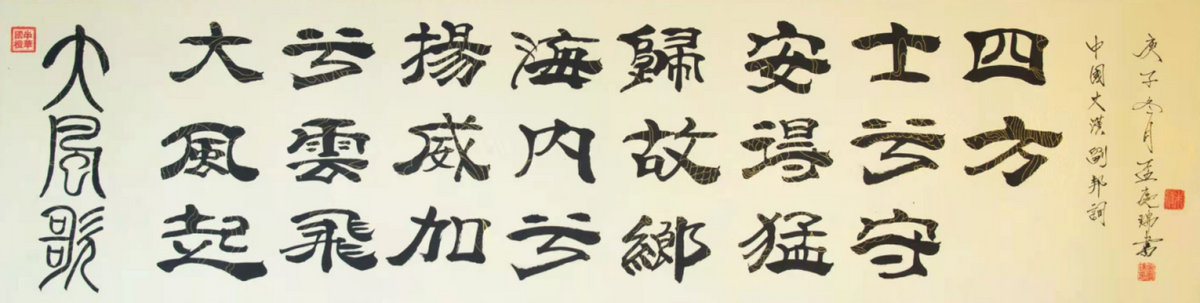 大風歌
大風起
兮雲飛
揚威加
海内兮
歸故鄉
安得猛
士兮守
四方
中國大漢劉邦詞
庚子冬月孟瑞書